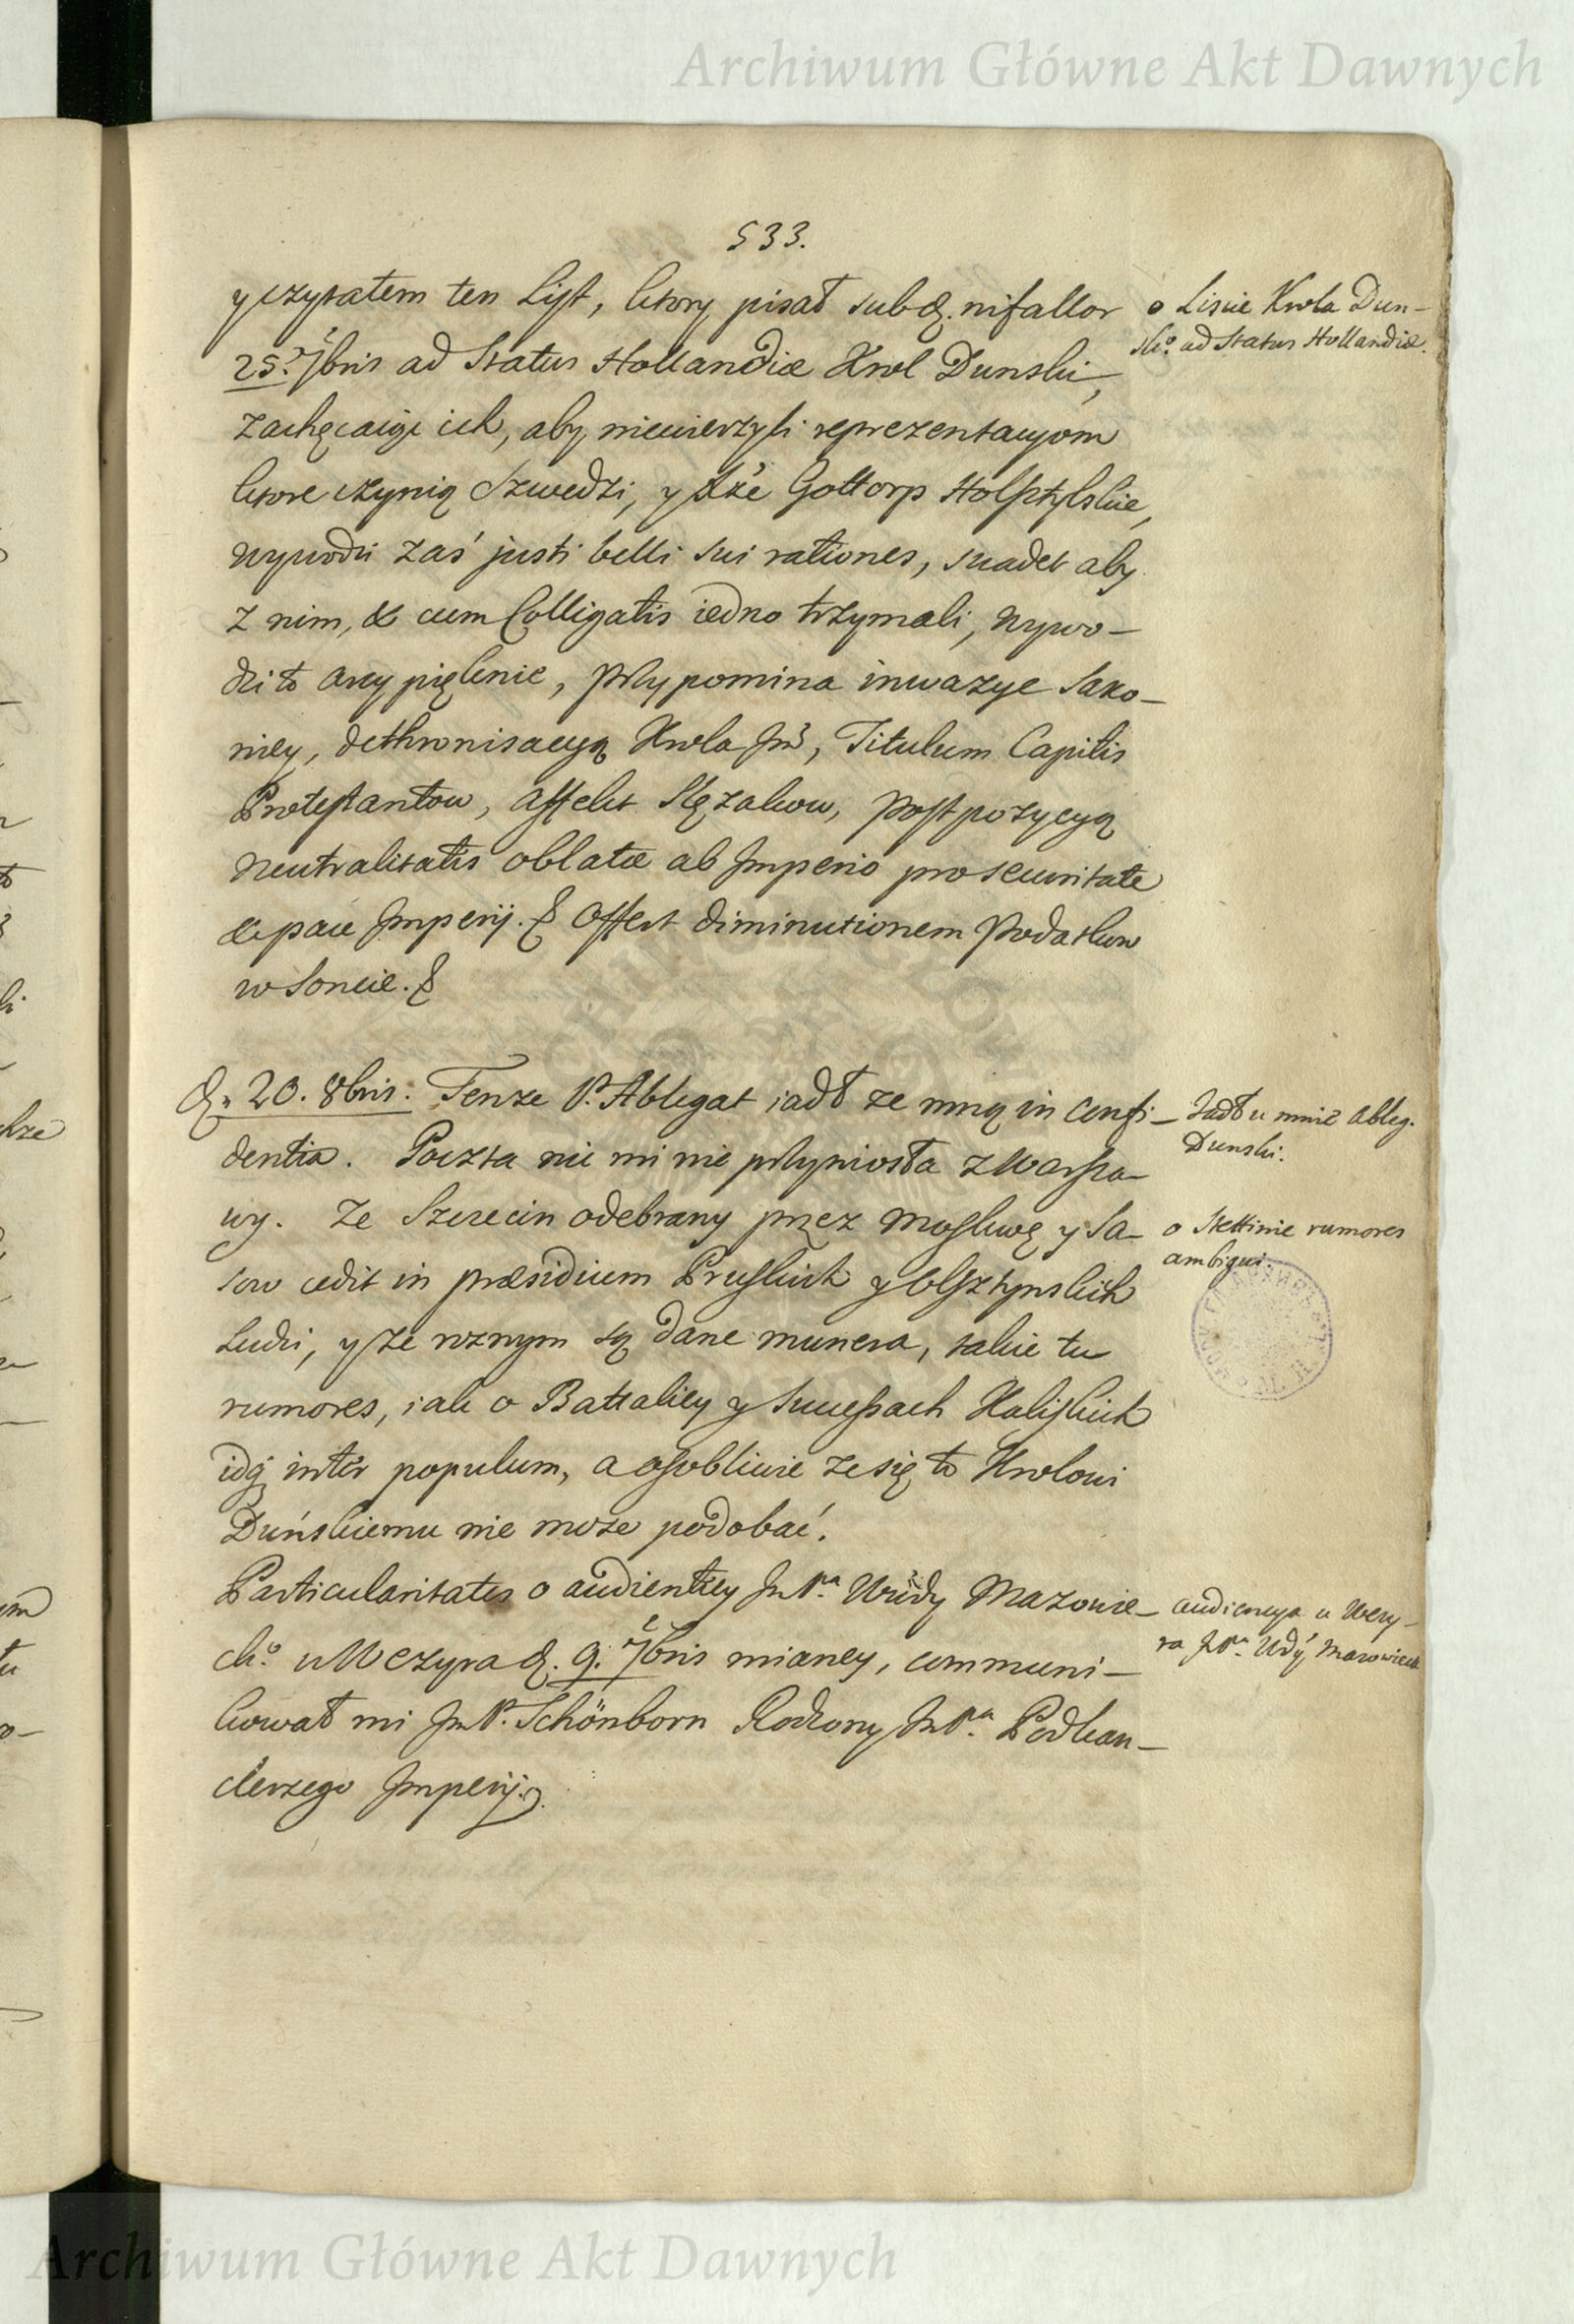 Archiwum Główne Akt Dawnych
533.
y czytałem ten List, ktory pisał sub d. ni fallor
25. 7bris ad Status Hollandiæ Krol Dunski,
zachęcaiąc ich, aby niewierzyli reprezentacyom
ktore czynią Szwedzi, y Xże Gottorp Holsztylskie,
wywodzi zaś justi belli sui rationes, suadet aby
z nim, & cum Colligatis iedno trzymali, wywo-
dzi to arcy pięknie, przypomina inwazye Saxo-
niey, dethronisacyą Krola Jm̃, Titulum Capitis
Protestantow, affekt Slęzakow, postpozycyą
neutralitatis oblatæ ab Imperio pro securitate
& pace Imperij. & Offert diminutionem Podatkow
w Soncie. &
o Liscie Krola Dun-
skiº ad Status Hollandiæ.
D. 20. 8bris. Tenze P. Ablegat iadł ze mną in confi-
dentia. Poczta nic mi nie przyniosła z Warsza-
wy. Ze Szczecin odebrany przez Moskwę y Sa-
sow cedit in præsidium Pruskich y Olsztynskich
Ludzi, y ze roznym są dane munera, takie tu
rumores, iak o Battaliey y Successach Kaliskich
idą inter populum, a osobliwie ze się to Krolowi
Duńskiemu nie moze podobać.
Jadł u mnie Ableg.
Dunski.
o Stettinie rumores
ambigui.
Particularitates o audientiey Jm Pª. Wdy Mazowie-
ckº. u Wezyra d. 9. 7bris mianey, communi-
kował mi Jm P. Schönborn Rodzony Jm Pª. Podkan-
clerzego Imperij.
audiencya u Wezy-
ra J Pª. Wdy Mazowieck
Archiwum Główne Akt Dawnych